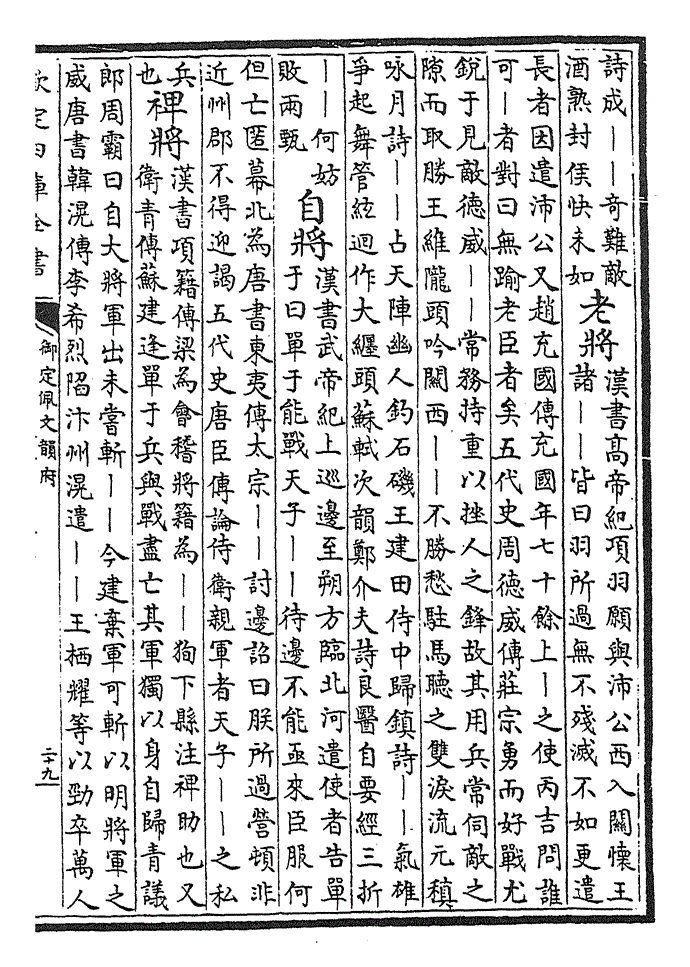 詩成——奇難敵
酒熟封侯快未如
老將
漢書高帝紀項羽願與沛公西入關懷王
諸——皆曰羽所過無不殘滅不如更遣
長者因遣沛公又趙充國傳充國年七十餘上—之使丙吉問誰
可—者對曰無踰老臣者矣五代史周德威傳莊宗勇而好戰尤
銳于見敵德威——常務持重以挫人之鋒故其用兵常伺敵之
隙而取勝王維隴頭吟關西——不勝愁駐馬聽之雙淚流元稹
咏月詩——占天陣幽人釣石磯王建田侍中歸鎮詩——氣雄
爭起舞管絃迴作大纏頭蘇軾次韻鄭介夫詩良醫自要經三折
——何妨
敗兩甄
自將
漢書武帝紀上巡邊至朔方臨北河遣使者告單
于曰單于能戰天子——待邊不能亟來臣服何
但亡匿幕北為唐書東夷傳太宗——討邊詔曰朕所過營頓非
近州郡不得迎謁五代史唐臣傳論侍衛親軍者天子——之私
兵
也
裨將
漢書項籍傳梁為會稽將籍為——狥下縣注裨助也又
衛青傳蘇建逢單于兵與戰盡亡其軍獨以身自歸青議
郎周霸曰自大將軍出未嘗斬——今建棄軍可斬以明將軍之
威唐書韓滉傳李希烈陷汴州滉遣——王栖耀等以勁卒萬人
欽定四庫全書
御定佩文韻府
二十九